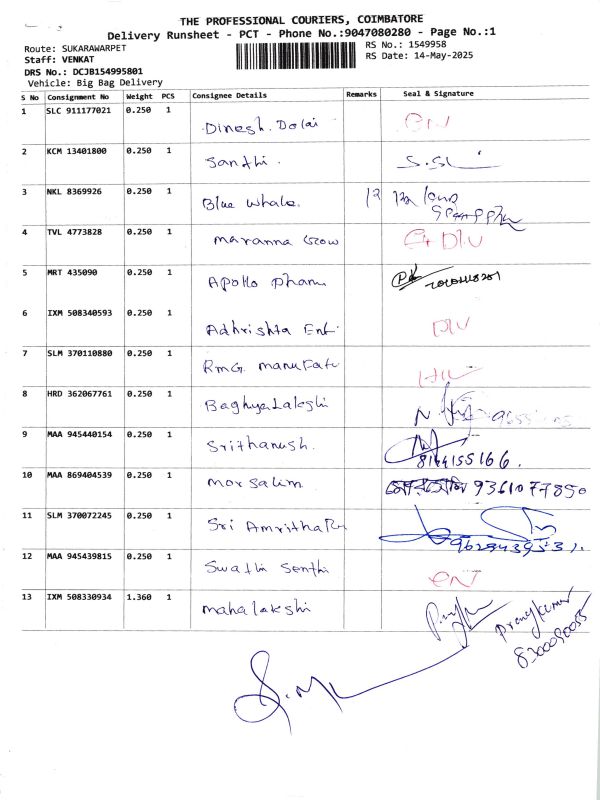 THE PROFESSIONAL COURIERS, COIMBATORE
Delivery Runsheet - PCT - Phone No.:9047080280 - Page No.:1
Route: SUKARAWARPET
RS No.: 1549958
Staff: VENKAT
RS Date: 14-May-2025
DRS No.: DCJB154995801
Vehicle: Big Bag Delivery
S No Consignment No Weight PCS Consignee Details Remarks Seal & Signature
1 SLC 911177021 0.250 1 Dinesh. Dolai
2 KCM 13401800 0.250 1 Santhi.
3 NKL 8369926 0.250 1 Blue Whale.
4 TVL 4773828 0.250 1 maranna Grow
5 MRT 435090 0.250 1 Apollo pharm
6 IXM 508340593 0.250 1 Adhrishta Ent.
7 SLM 370110880 0.250 1 RMG manufatu
8 HRD 362067761 0.250 1 Baghya Lakshi
9 MAA 945440154 0.250 1 Srithanush. 8144155166.
10 MAA 869404539 0.250 1 morsalim 9361077890
11 SLM 370072245 0.250 1 Sri Amritha
12 MAA 945439815 0.250 1 Swathi Senthi
13 IXM 508330934 1.360 1 mahalakshi Pranj kumar
8300090055